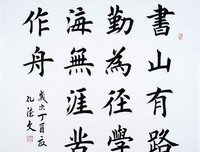 書山有路
勤為徑學
海無涯苦
作舟
歲次丁酉